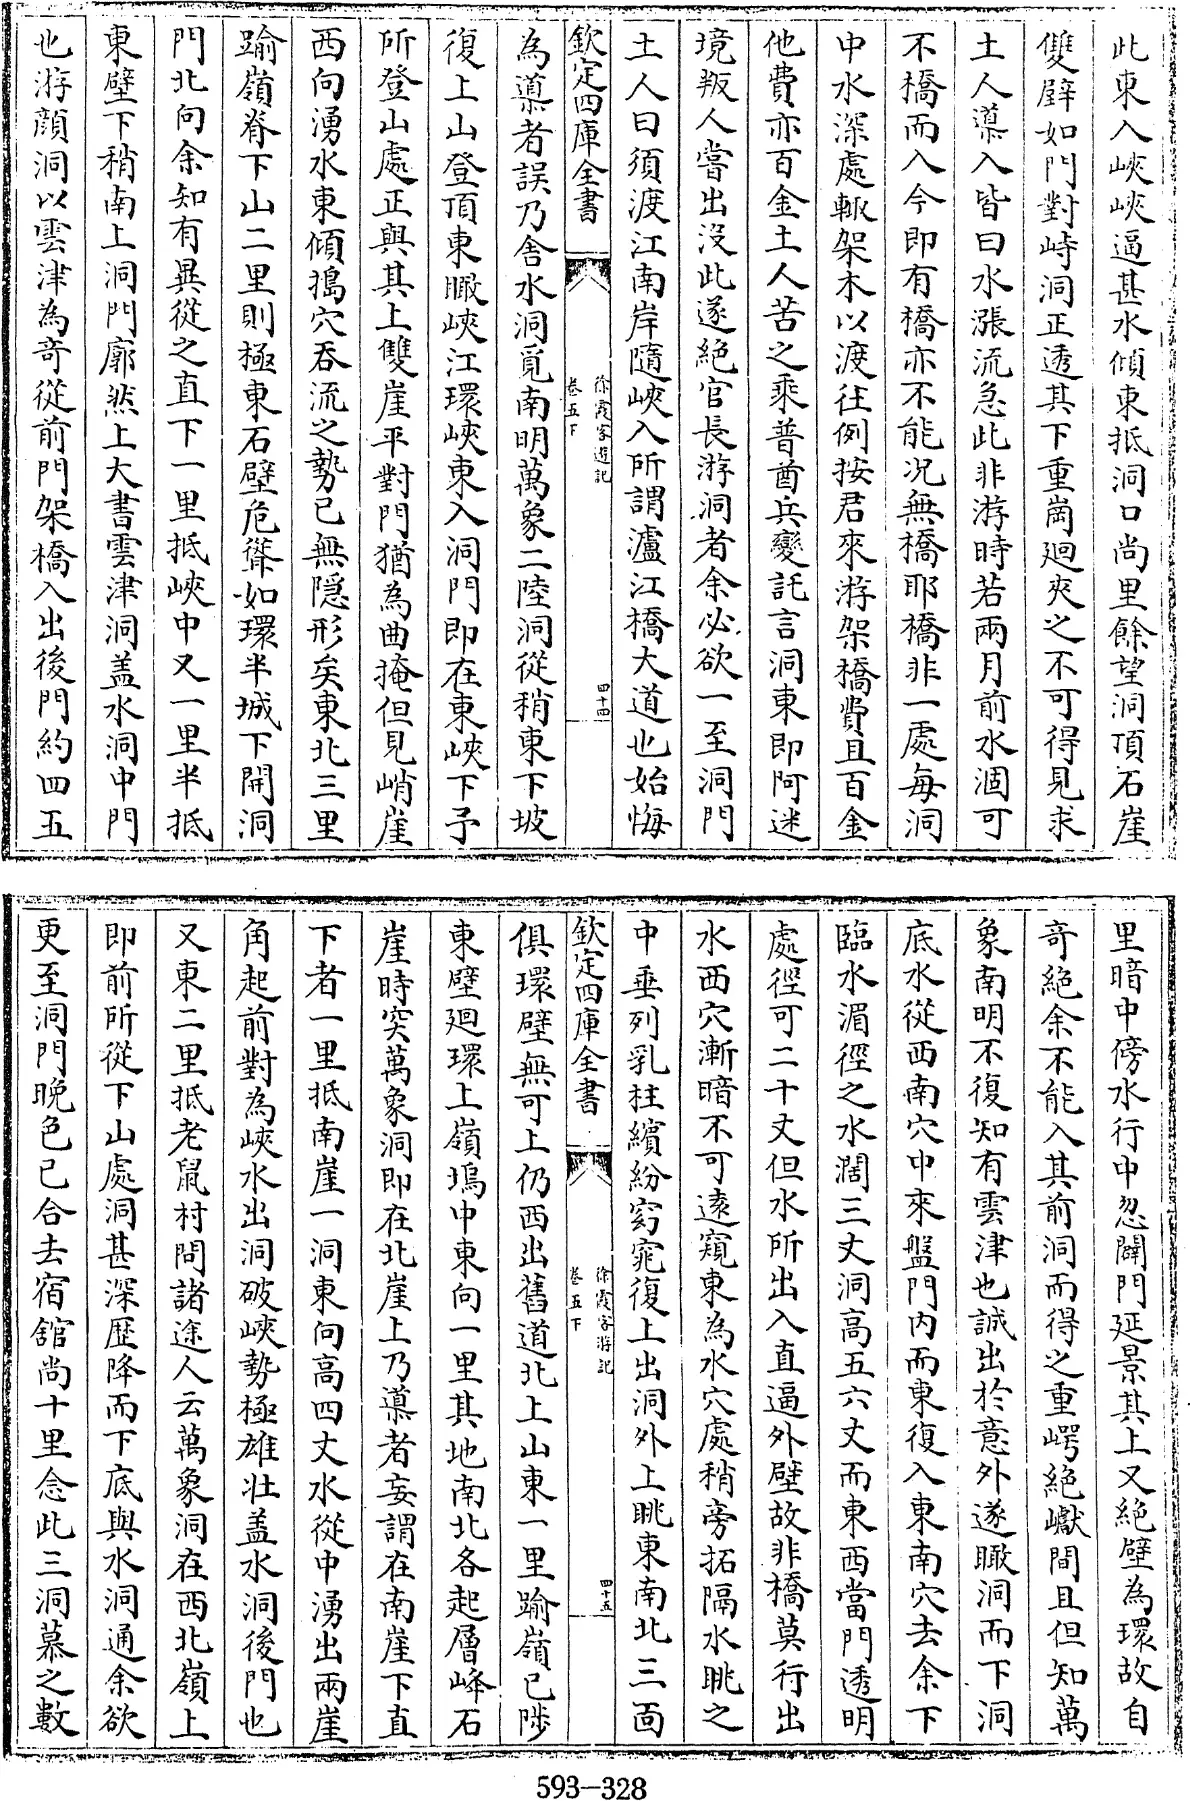 此東入峽峽逼甚水傾東抵洞口尚里餘望洞頂石崖
雙闢如門對峙洞正透其下重崗廻夾之不可得見求
土人導入皆曰水漲流急此非游時若兩月前水涸可
不橋而入今即有橋亦不能况無橋耶橋非一處毎洞
中水深處輙架木以渡往例按君來游架橋費且百金
他費亦百金土人苦之乘普酋兵變託言洞東即阿迷
境叛人嘗出沒此遂絶官長游洞者余必欲一至洞門
土人曰須渡江南岸隨峽入所謂瀘江橋大道也始悔
欽定四庫全書
徐霞客遊記
卷五下
四十四
為導者誤乃舍水洞覓南明萬象二陸洞從稍東下坡
復上山登頂東瞰峽江環峽東入洞門即在東峽下予
所登山處正與其上雙崖平對門猶為曲掩但見峭崖
西向湧水東傾搗穴吞流之勢已無隱形矣東北三里
踰嶺脊下山二里則極東石壁危聳如環半城下開洞
門北向余知有異從之直下一里抵峽中又一里半抵
東壁下稍南上洞門廓然上大書雲津洞盖水洞中門
也游顔洞以雲津為奇從前門架橋入出後門約四五
里暗中傍水行中忽闢門延景其上又絶壁為環故自
奇絶余不能入其前洞而得之重崿絶巘間且但知萬
象南明不復知有雲津也誠出於意外遂瞰洞而下洞
底水從西南穴中來盤門内而東復入東南穴去余下
臨水湄徑之水濶三丈洞高五六丈而東西當門透明
處徑可二十丈但水所出入直逼外壁故非橋莫行出
水西穴漸暗不可逺窺東為水穴處稍旁拓隔水眺之
中垂列乳柱繽紛窈窕復上出洞外上眺東南北三面
欽定四庫全書
徐霞客游記
卷五下
四十五
俱環壁無可上仍西出舊道北上山東一里踰嶺已陟
東壁廻環上嶺塢中東向一里其地南北各起層峰石
崖時突萬象洞即在北崖上乃導者妄謂在南崖下直
下者一里抵南崖一洞東向高四丈水從中湧出兩崖
角起前對為峽水出洞破峽勢極雄壯盖水洞後門也
又東二里抵老鼠村問諸途人云萬象洞在西北嶺上
即前所從下山處洞甚深歴降而下底與水洞通余欲
更至洞門晚色已合去宿舘尚十里念此三洞慕之數
593-328